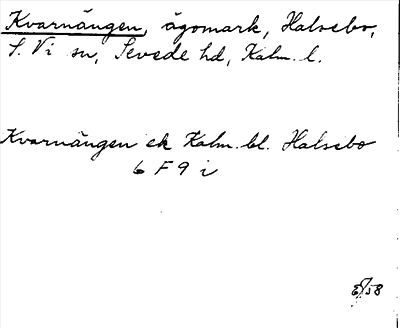 Kvarnängen, ägomark, Halsebo,
S. Vi sn, Sevede hd, Kalm. l.
Kvarnängen ek Kalm. bl. Halsebo
6 F 9 i